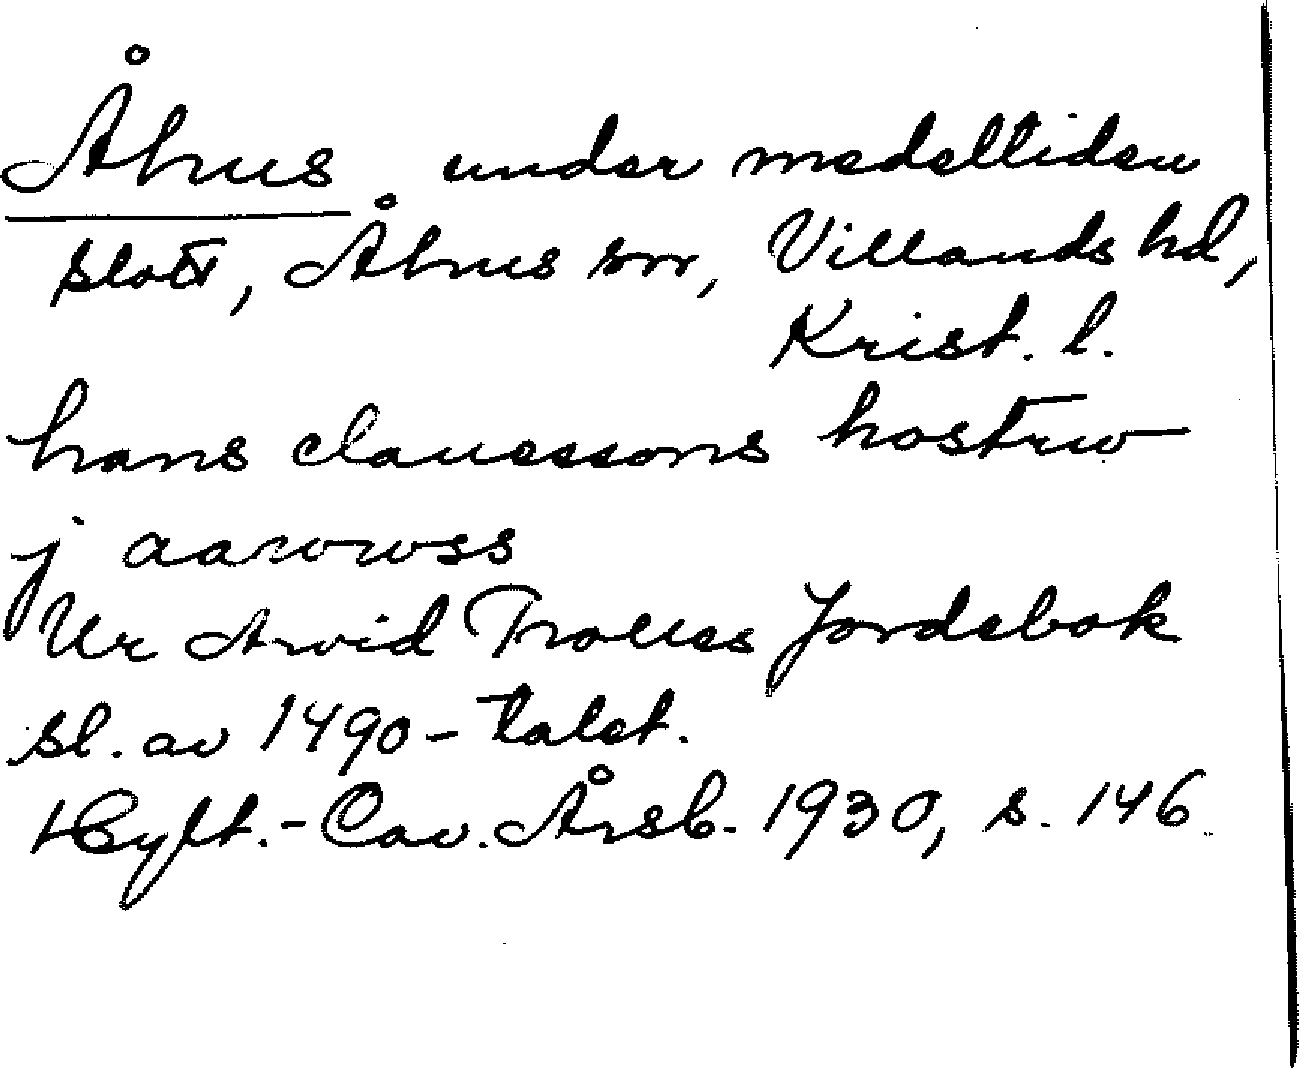 Åhus under medeltiden
slott, Åhus srr, Villands hd,
Krist. l.
hans clauessons hostrw
j aarowss
Ur Arvid Trolles Jordebok
sl. av 1490-talet.
Hylt.-Cav. Årsb. 1930, s. 146